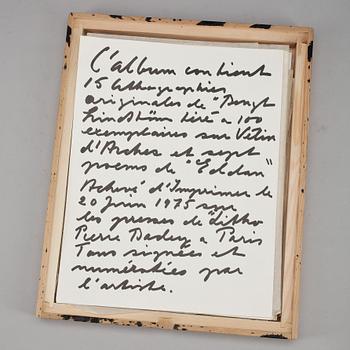 L'album contient
15 lithographies
originales de "Bengt
Lindström tiré a 100
exemplaires sur Vélin
d'Arches et sept
poems de "Eddan"
Achevé d'Imprimer le
20 Juin 1975 sur
les presses de "litho
Pierre Badey a Paris
Tous signées et
numérotées par
l'artiste.